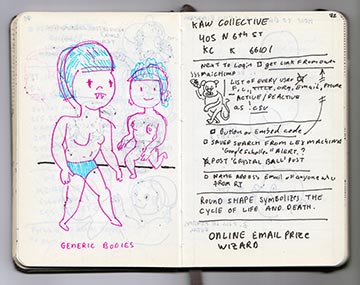 GENERIC BODIES
KAW COLLECTIVE
405 N 6th ST
KC K 66101
NEXT TO LOGIN □ GET LINK FROM
MAICHIMP
LIST OF EVERY USER
F, L, TITLE, ORG, EMAIL, PHONE
ACTIVE/REACTIVE
AS .CSV
□ Button or Embed code
□ SAVED SEARCH FROM LEXMACHINA
"Google Scholar" ALERT?
POST 'CAPITAL BALL' POST
□ NAME ADDRESS Email of anyone who
from RT
ROUND SHAPE SYMBOLIZES THE
CYCLE OF LIFE AND DEATH.
ONLINE EMAIL PRIZE
WIZARD